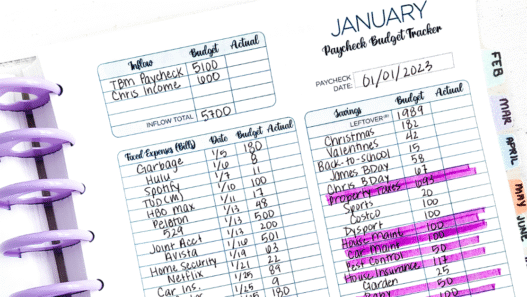 JANUARY
Paycheck Budget Tracker
PAYCHECK DATE: 01/01/2023
Inflow Budget Actual
TBM Paycheck 5100
Chris Income 600
INFLOW TOTAL 5700
Fixed Expenses (Bills) Date Budget Actual
Garbage 1/5 180
Hulu 1/6 8
Spotify 1/7 11
1/10 100
HBO max 1/11 9
Peloton 1/13 48
529 1/13 500
Joint Acct 1/13 200
Avista 1/16 501
Home Security 1/19 63
Netflix 1/21 22
Car Ins. 1/25 89
1/25 9
180
Savings Budget Actual
LEFTOVER 1989
Christmas 182
Valentines 42
Back-to-school 15
James BDay 58
Chris BDay 67
Property Taxes 693
Sports 12
Costco 100
Dysport 100
House Maint 100
Car Maint 100
Pest Control 50
House Insurance 117
Garden 25
Baby 50
100
FEB
MAR
APRIL
MAY
JUNE